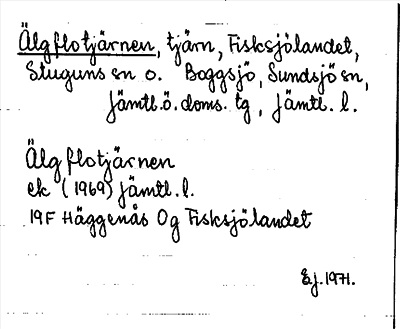 Älgflotjärnen, tjärn, Fisksjölandet,
Stuguns sn o. Boggsjö, Sundsjö sn,
Jämtl.ö. doms. tg, Jämtl. l.
Älgflotjärnen
ek (1969) Jämtl. l.
19F Häggenås 0g Fisksjölandet
Ej. 1971.